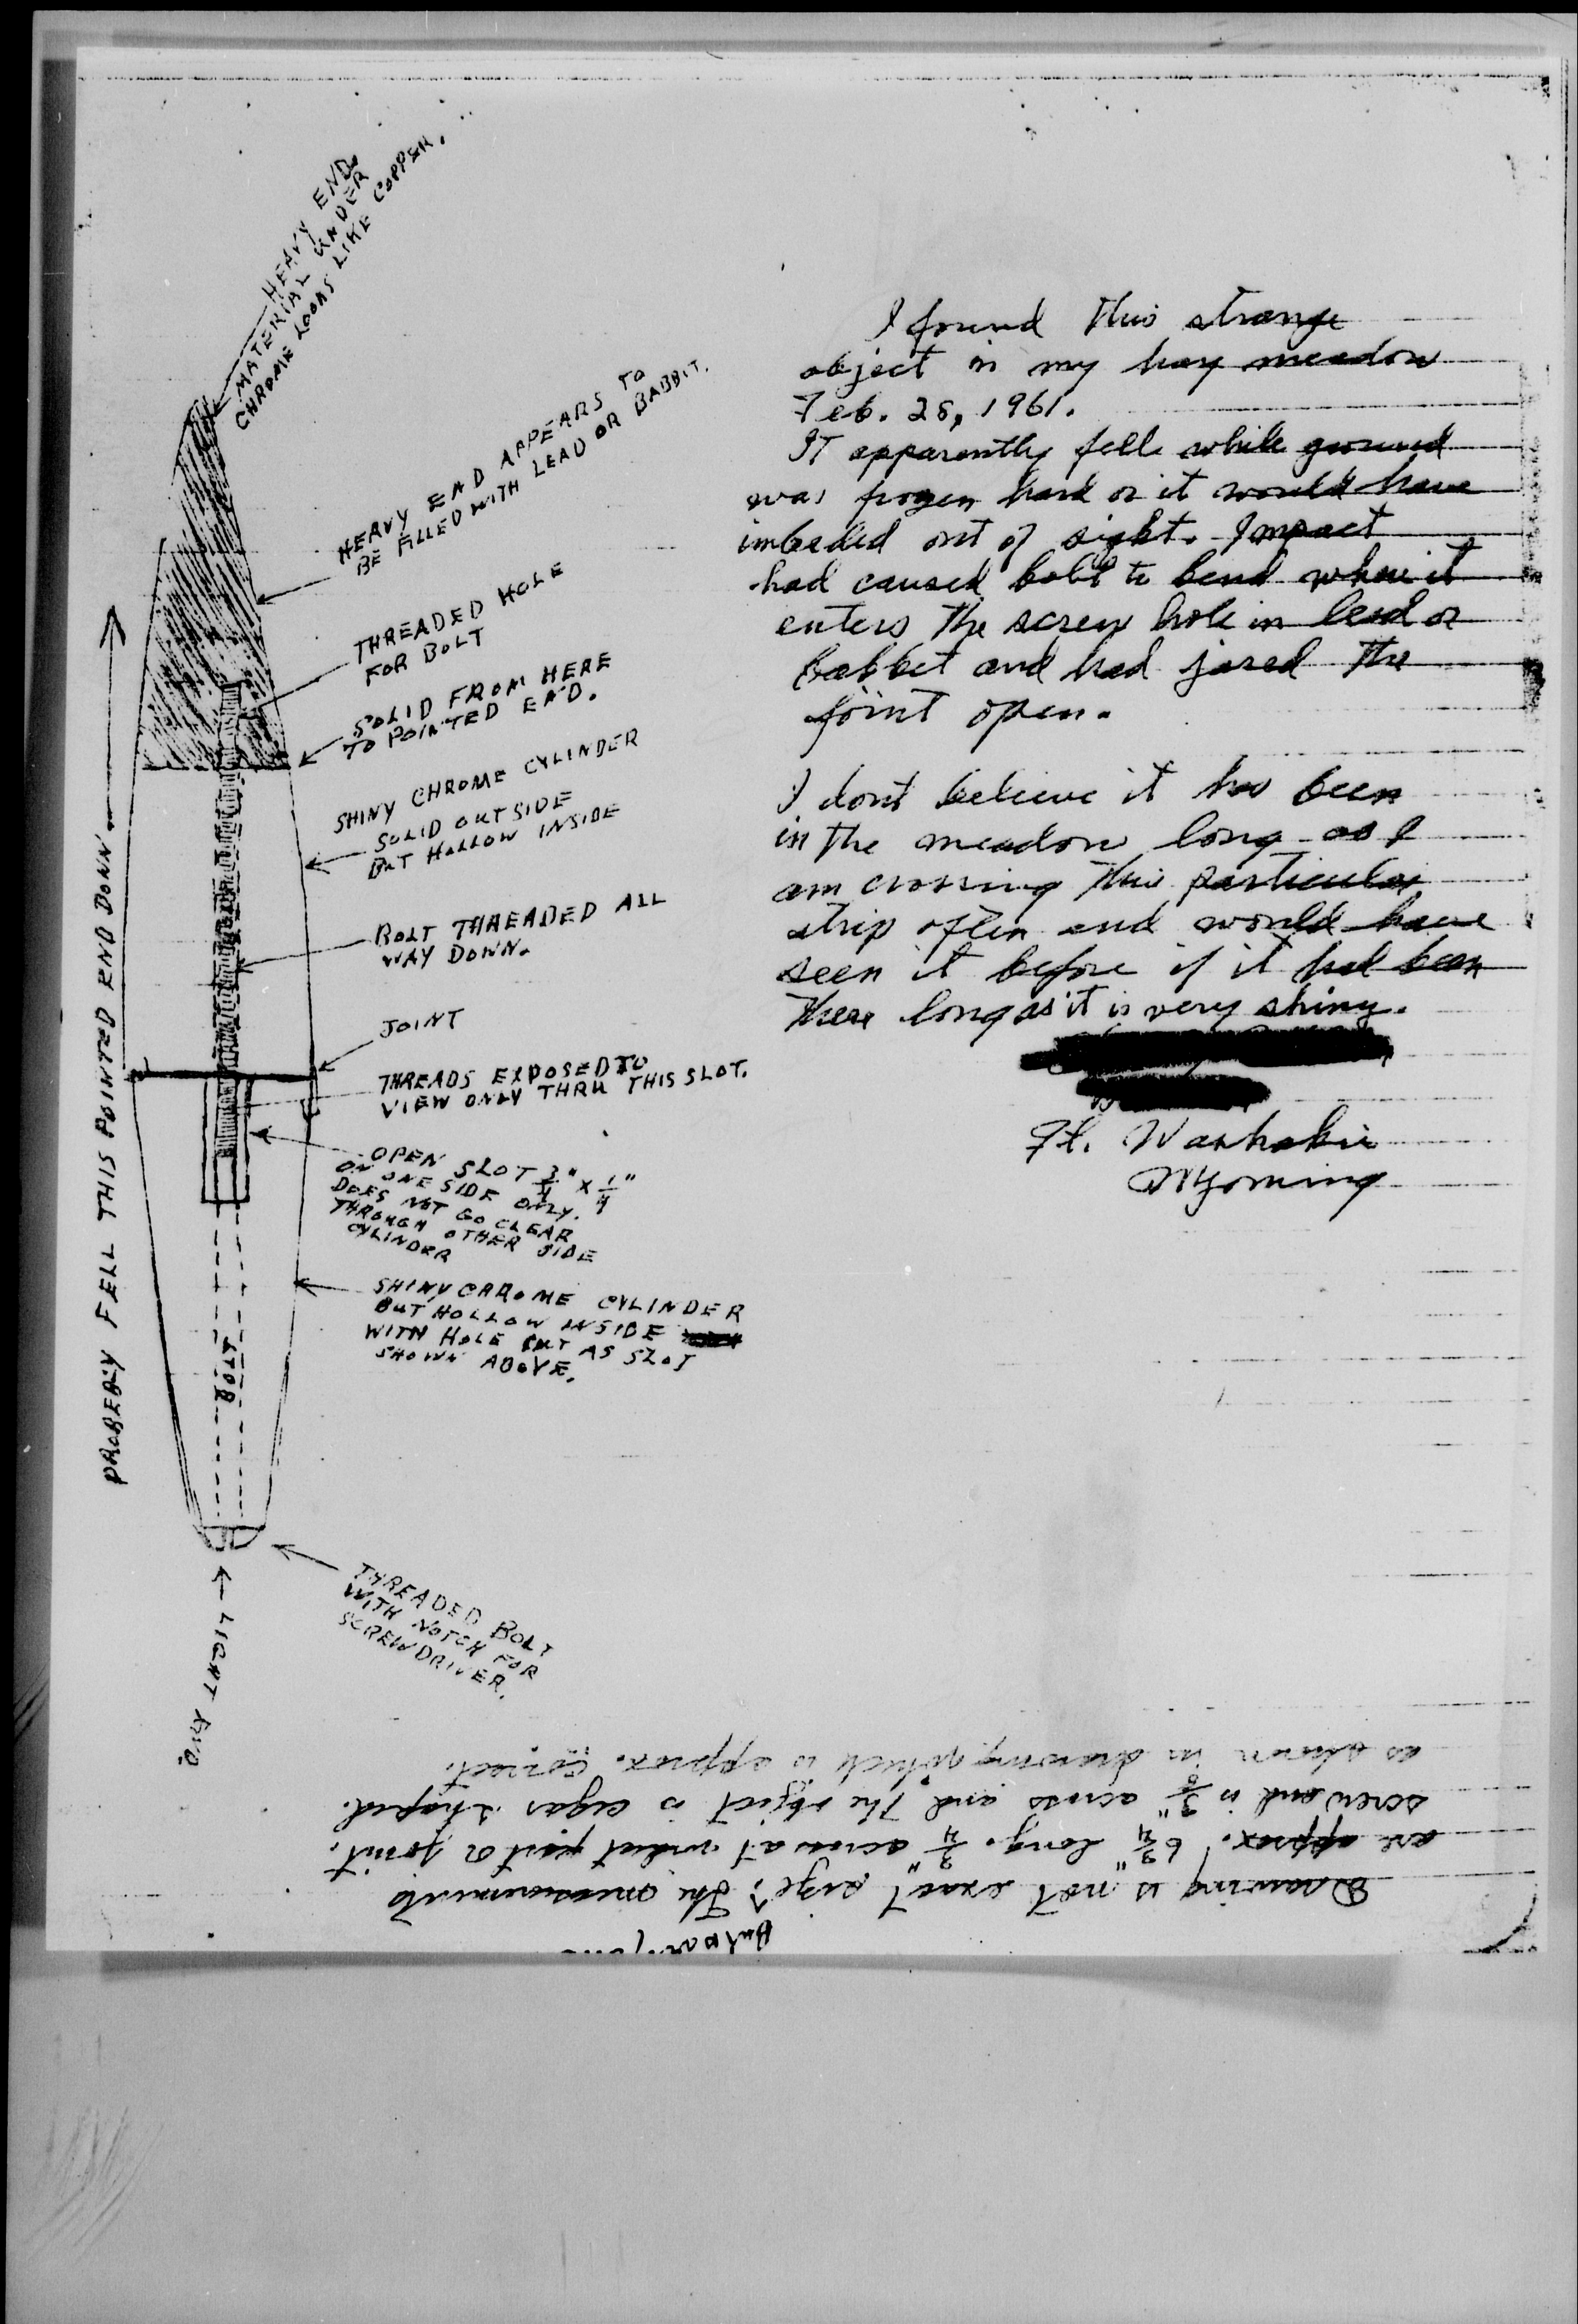 HEAVY END.
MATERIAL UNDER
CHROME LOOKS LIKE COPPER.
HEAVY END APPEARS TO
BE FILLED WITH LEAD OR BABBIT.
THREADED HOLE
FOR BOLT
SOLID FROM HERE
TO POINTED END.
SHINY CHROME CYLINDER
SOLID OUTSIDE
BUT HOLLOW INSIDE
BOLT THREADED ALL
WAY DOWN.
JOINT
THREADS EXPOSED TO
VIEW ONLY THRU THIS SLOT.
OPEN SLOT 3/4" X 1/4"
ON ONE SIDE ONLY.
DOES NOT GO CLEAR
THROUGH OTHER SIDE
CYLINDER
SHINY CHROME CYLINDER
BUT HOLLOW INSIDE
WITH HOLE CUT AS SLOT
SHOWN ABOVE.
THREADED BOLT
WITH NOTCH FOR
SCREWDRIVER.
BOLT
LIGHT END
PROBEBLY FELL THIS POINTED END DOWN
I found this strange
object in my hay meadow
Feb. 28, 1961.
IT apparently fell while ground
was frozen hard or it would have
imbeded out of sight. Impact
had caused bolt to bend where it
enters the screw hole in lead or
babbet and had jared the
joint open.
I dont believe it has been
in the meadow long as I
am crossing this particular
strip often and would have
seen it before if it had been
there long as it is very shiny.
Ft. Washakie
Wyoming
Drawing is not exact size. The measurements
are approx. 6 3/4" long. 3/4" across at widest part or joint.
screw end is 3/8" across and the object is cigar shaped.
as shown in drawing which is approx. correct.